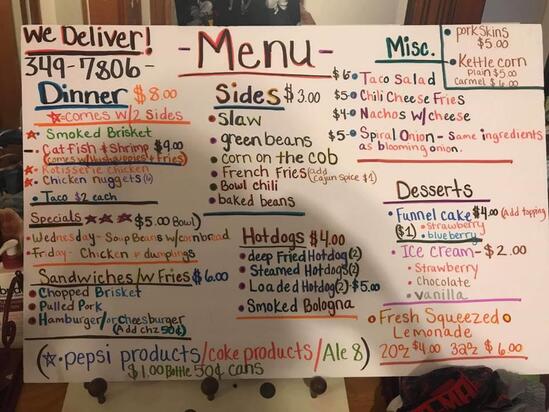 We Deliver!
349-7806-
- Menu -
Dinner $8.00
☆=comes w/2 sides
☆ Smoked Brisket
- Catfish & shrimp $9.00
(comes w/hushpuppies & fries)
☆ Rotisserie chicken
☆ Chicken nuggets (6)
• Taco $2 each
Specials ☆☆☆ $5.00 Bowl)
• Wednesday- Soup Beans w/cornbread
• Friday- Chicken & dumplings
Sandwiches /w Fries $6.00
• Chopped Brisket
• Pulled Pork
• Hamburger/or cheesburger
(Add chz 50¢)
Sides $3.00
• Slaw
• green beans
• corn on the cob
• French Fries (add Cajun spice $1)
• Bowl chili
• baked beans
Hotdogs $4.00
• deep Fried Hotdog(2)
• Steamed Hotdogs(2)
• Loaded Hotdog(2)-$5.00
• Smoked Bologna
Misc.
• porkSkins
$5.00
• Kettle corn
Plain $5.00
Carmel $6.00
$6 • Taco Salad
$5 • Chili Cheese Fries
$4 • Nachos w/cheese
$5- • Spiral Onion - Same ingredients
as blooming onion.
Desserts
• Funnel cake $4.00 (Add topping
($1) • strawberry
• blueberry
• ICE Cream - $2.00
• Strawberry
• Chocolate
• vanilla
• Fresh Squeezed •
Lemonade
20oz $4.00 32oz $6.00
(☆• pepsi products/coke products/Ale 8)
$1.00 Bottle 50¢ cans